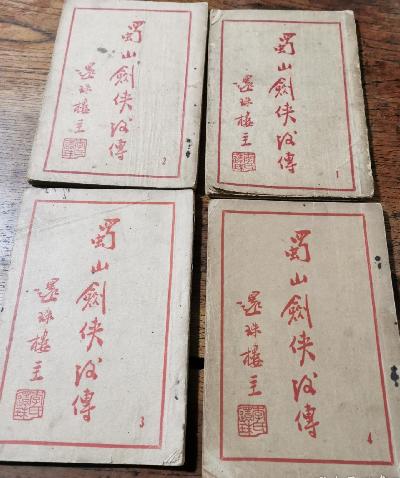 蜀山劍俠後傳
還珠樓主
2
蜀山劍俠後傳
還珠樓主
1
蜀山劍俠後傳
還珠樓主
3
蜀山劍俠後傳
還珠樓主
4